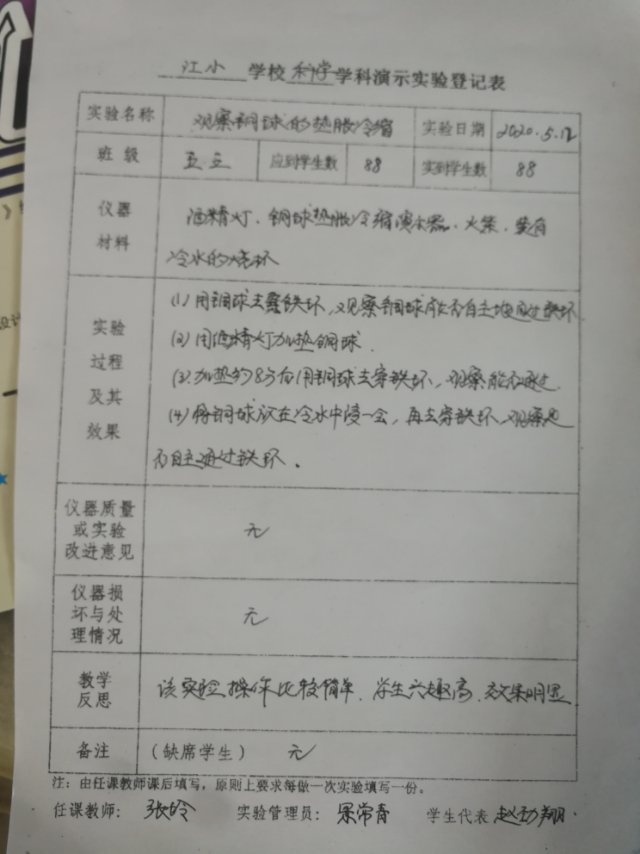 江小 学校 科学 学科演示实验登记表
实验名称 观察铜球的热胀冷缩 实验日期 2020.5.12
班级 五五 应到学生数 88 实到学生数 88
仪器材料 酒精灯、铜球热胀冷缩演示器、火柴、装有
冷水的烧杯
实验过程及其效果
(1) 用铜球去穿铁环,观察铜球能否自主地通过铁环
(2) 用酒精灯加热铜球.
(3) 加热约8分后用铜球去穿铁环,观察能否通过.
(4) 将铜球放在冷水中浸一会,再去穿铁环,观察能
否自主通过铁环.
仪器质量或实验改进意见 无
仪器损坏与处理情况 无
教学反思 该实验操作比较简单、学生兴趣高、效果明显
备注 (缺席学生) 无
注:由任课教师课后填写,原则上要求每做一次实验填写一份。
任课教师: 张玲 实验管理员: 常青 学生代表 赵劲翔